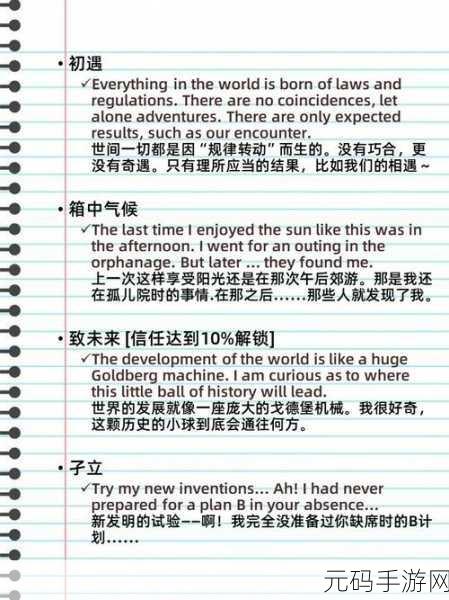 • 初遇
✓Everything in the world is born of laws and
regulations. There are no coincidences, let
alone adventures. There are only expected
results, such as our encounter.
世间一切都是因“规律转动”而生的。没有巧合，更
没有奇遇。只有理所应当的结果，比如我们的相遇～
• 箱中气候
✓The last time I enjoyed the sun like this was in
the afternoon. I went for an outing in the
orphanage. But later ... they found me.
上一次这样享受阳光还是在那次午后郊游。那是我还
在孤儿院时的事情.在那之后......那些人就发现了我。
• 致未来 [信任达到10%解锁]
✓The development of the world is like a huge
Goldberg machine. I am curious as to where
this little ball of history will lead.
世界的发展就像一座庞大的戈德堡机械。我很好奇，
这颗历史的小球到底会通往何方。
• 孑立
✓Try my new inventions... Ah! I had never
prepared for a plan B in your absence...
新发明的试验——啊！我完全没准备过你缺席时的B计
划......
元码手游网